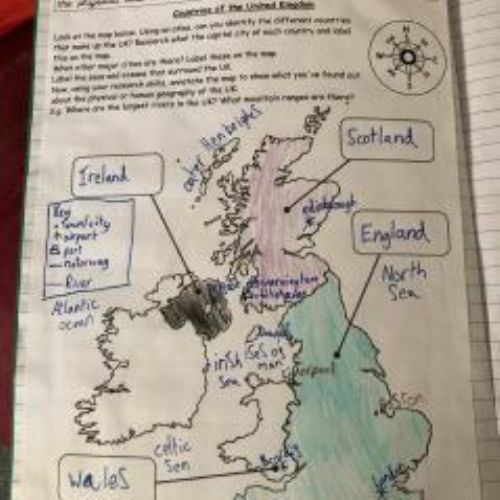 the physical
Countries of the United Kingdom
Look at the map below. Using an atlas, can you identify the different countries
that make up the UK? Research what the capital city of each country and label
this on the map.
What other major cities are there? Label these on the map.
Label the seas and oceans that surround the UK.
Now using your research skills, annotate the map to show what you've found out
about the physical or human geography of the UK.
E.g. Where are the largest rivers in the UK? What mountain ranges are there?
N
outer Henbrighes
Scotland
Ireland
edinbourgh
Key
town/city
airport
port
motorway
River
England
North
Sea
Atlantic
ocean
irish
Sea
isles of
man
Liverpool
celtic
Sea
Wales